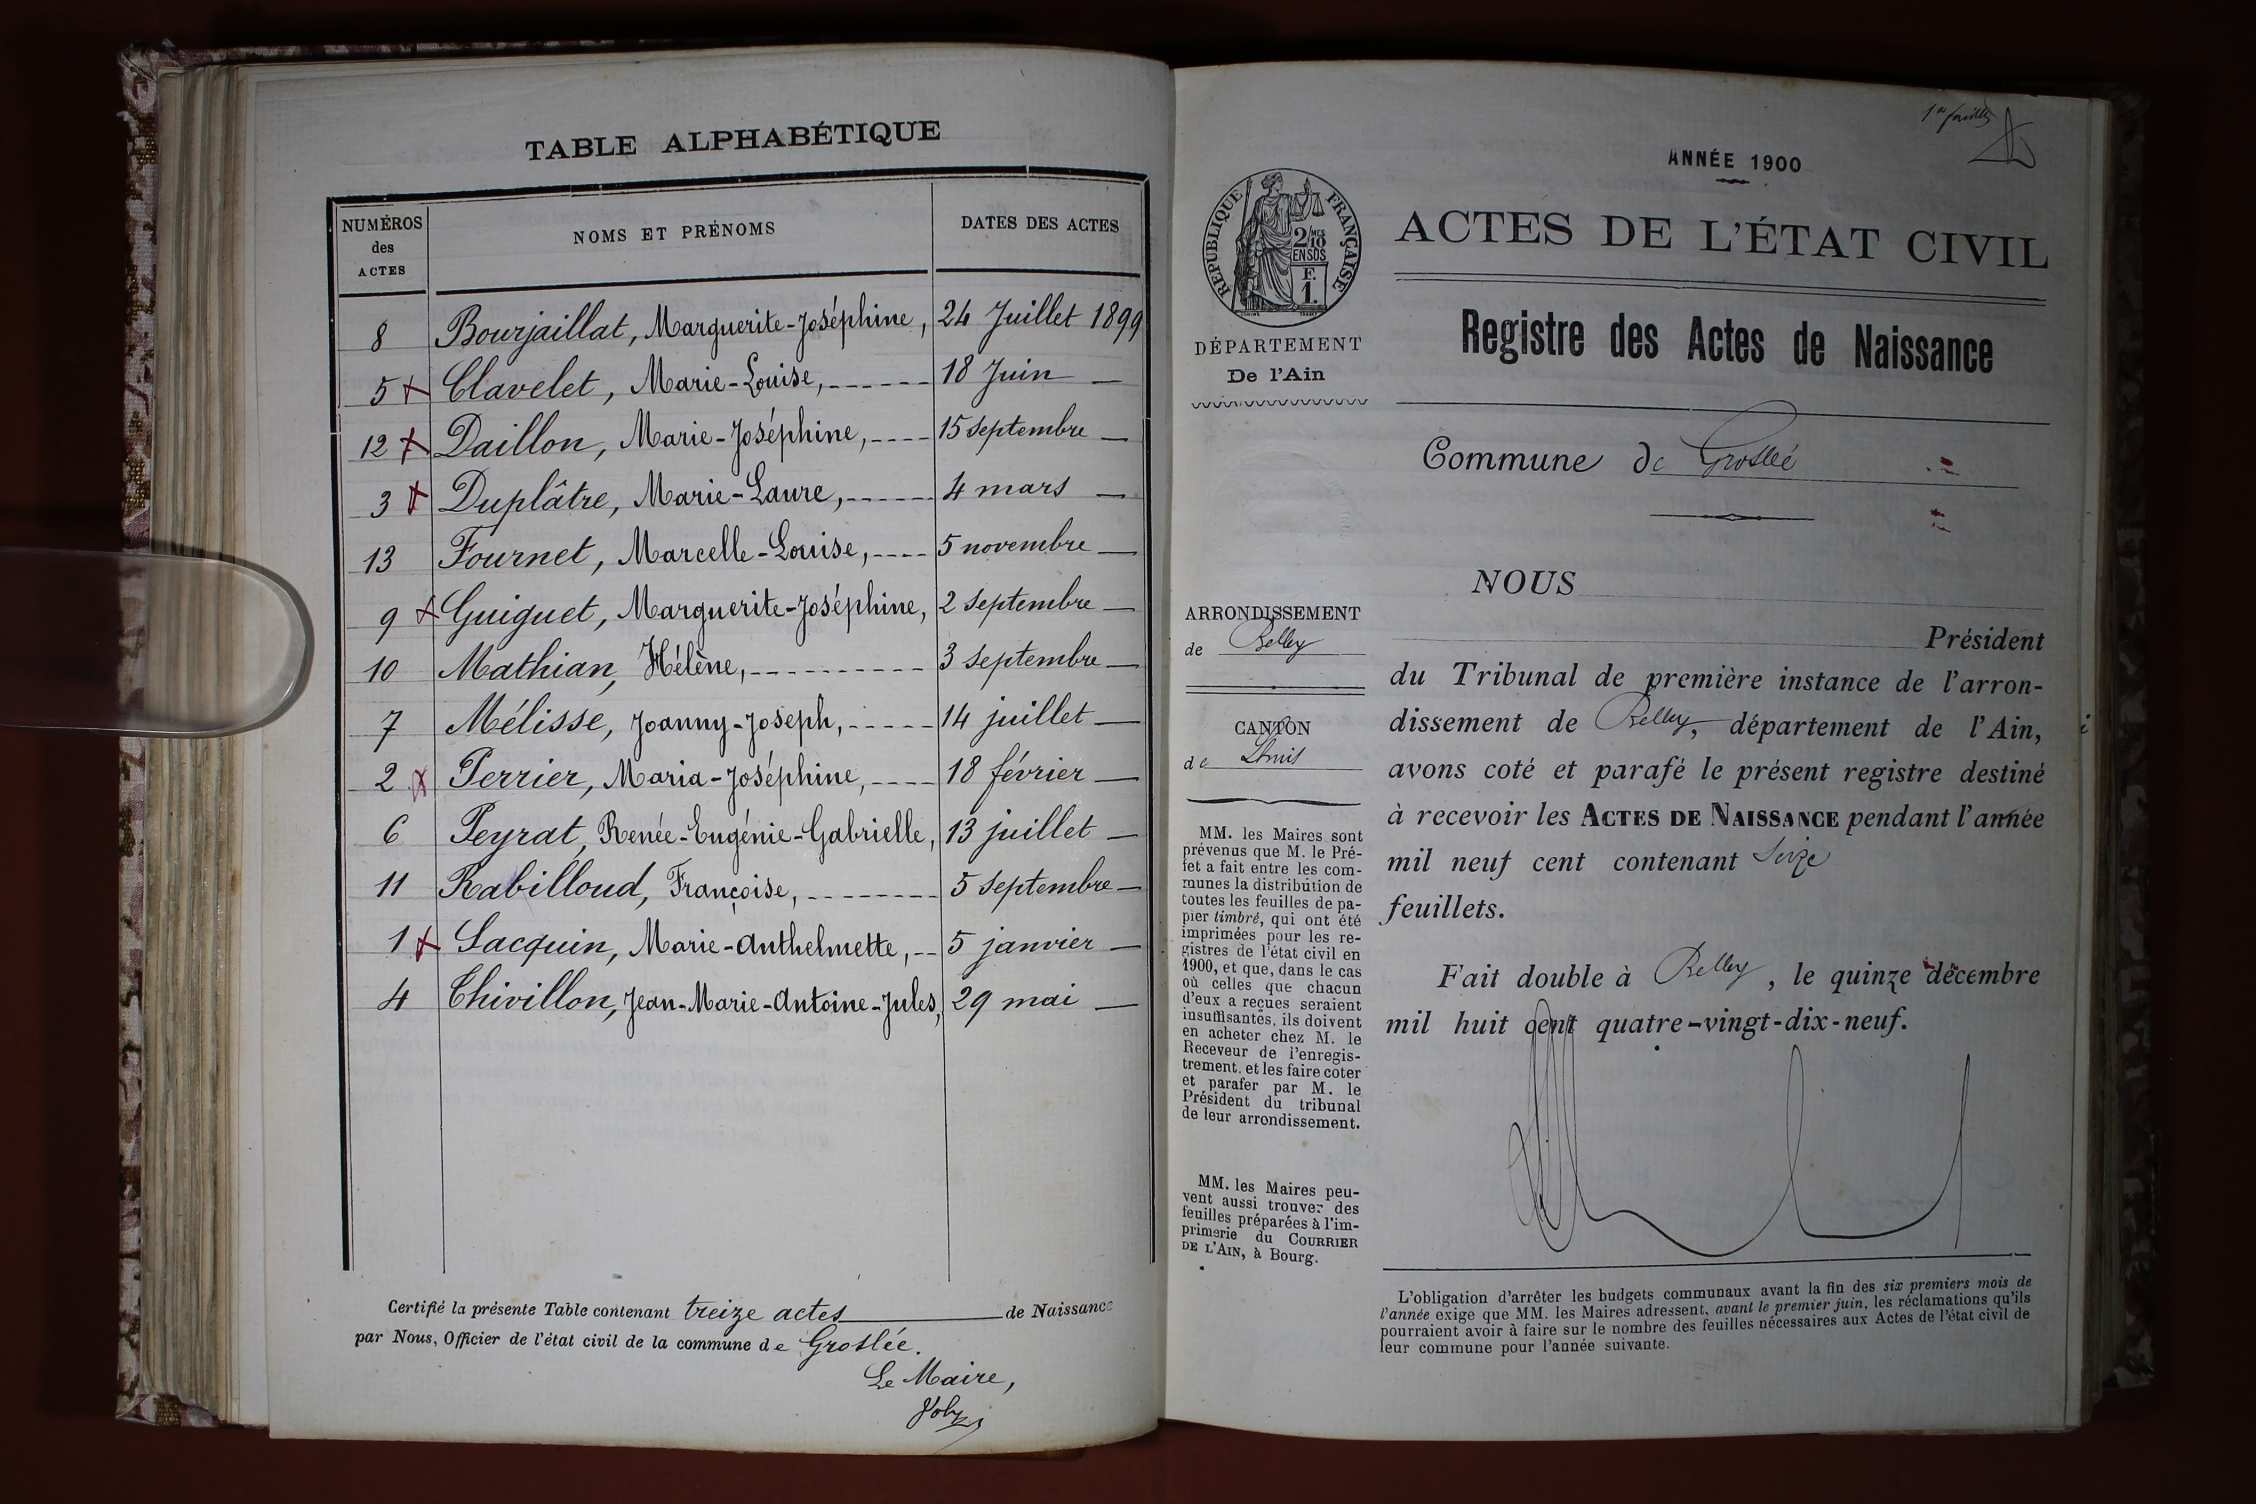 TABLE ALPHABÉTIQUE
NUMÉROS des ACTES
NOMS ET PRÉNOMS
DATES DES ACTES
8 Bourjaillat, Marguerite-Joséphine, 24 Juillet 1899
5 Clavelet, Marie-Louise, 18 Juin —
12 Daillon, Marie-Joséphine, 15 septembre —
3 Duplâtre, Marie-Laure, 4 mars —
13 Fournet, Marcelle-Louise, 5 novembre —
9 Guiguet, Marguerite-Joséphine, 2 septembre —
10 Mathian, Hélène, 3 septembre —
7 Mélisse, Joanny-Joseph, 14 juillet —
2 Perrier, Maria-Joséphine, 18 février —
6 Peyrat, Renée-Eugénie-Gabrielle, 13 juillet —
11 Rabilloud, Françoise, 5 septembre —
1 Sacquin, Marie-Anthelmette, 5 janvier —
4 Chivillon, Jean-Marie-Antoine-Jules, 29 mai —
Certifié la présente Table contenant treize actes de Naissance
par Nous, Officier de l'état civil de la commune de Groslée.
Le Maire,
ANNÉE 1900
RÉPUBLIQUE FRANÇAISE
2/10 MES
EN SUS
F.
1.
ACTES DE L'ÉTAT CIVIL
Registre des Actes de Naissance
DÉPARTEMENT
De l'Ain
Commune de Groslée
ARRONDISSEMENT
de Belley
CANTON
de Lhuis
MM. les Maires sont
prévenus que M. le Pré-
fet a fait entre les com-
munes la distribution de
toutes les feuilles de pa-
pier timbré, qui ont été
imprimées pour les re-
gistres de l'état civil en
1900, et que, dans le cas
où celles que chacun
d'eux a reçues seraient
insuffisantes, ils doivent
en acheter chez M. le
Receveur de l'enregis-
trement, et les faire coter
et parafer par M. le
Président du tribunal
de leur arrondissement.
MM. les Maires peu-
vent aussi trouver des
feuilles préparées à l'im-
primerie du COURRIER
DE L'AIN, à Bourg.
NOUS
Président
du Tribunal de première instance de l'arron-
dissement de Belley, département de l'Ain,
avons coté et parafé le présent registre destiné
à recevoir les ACTES DE NAISSANCE pendant l'année
mil neuf cent contenant Seize
feuillets.
Fait double à Belley, le quinze décembre
mil huit cent quatre-vingt-dix-neuf.
L'obligation d'arrêter les budgets communaux avant la fin des six premiers mois de
l'année exige que MM. les Maires adressent, avant le premier juin, les réclamations qu'ils
pourraient avoir à faire sur le nombre des feuilles nécessaires aux Actes de l'état civil de
leur commune pour l'année suivante.